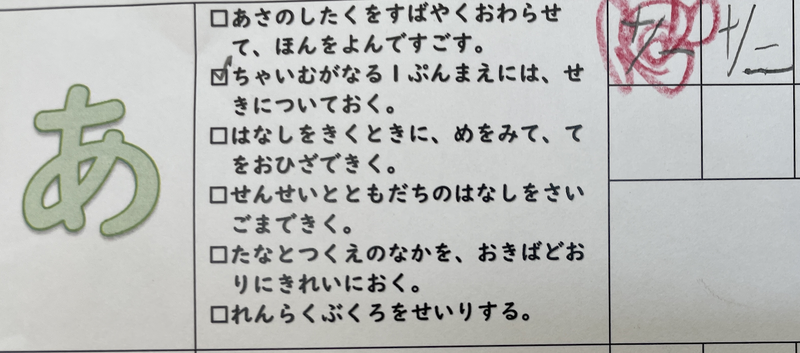 あ
□あさのしたくをすばやくおわらせ
て、ほんをよんですごす。
☑ちゃいむがなる1ぷんまえには、せ
きについておく。
□はなしをきくときに、めをみて、て
をおひざできく。
□せんせいとともだちのはなしをさい
ごまできく。
□たなとつくえのなかを、おきばどお
りにきれいにおく。
□れんらくぶくろをせいりする。